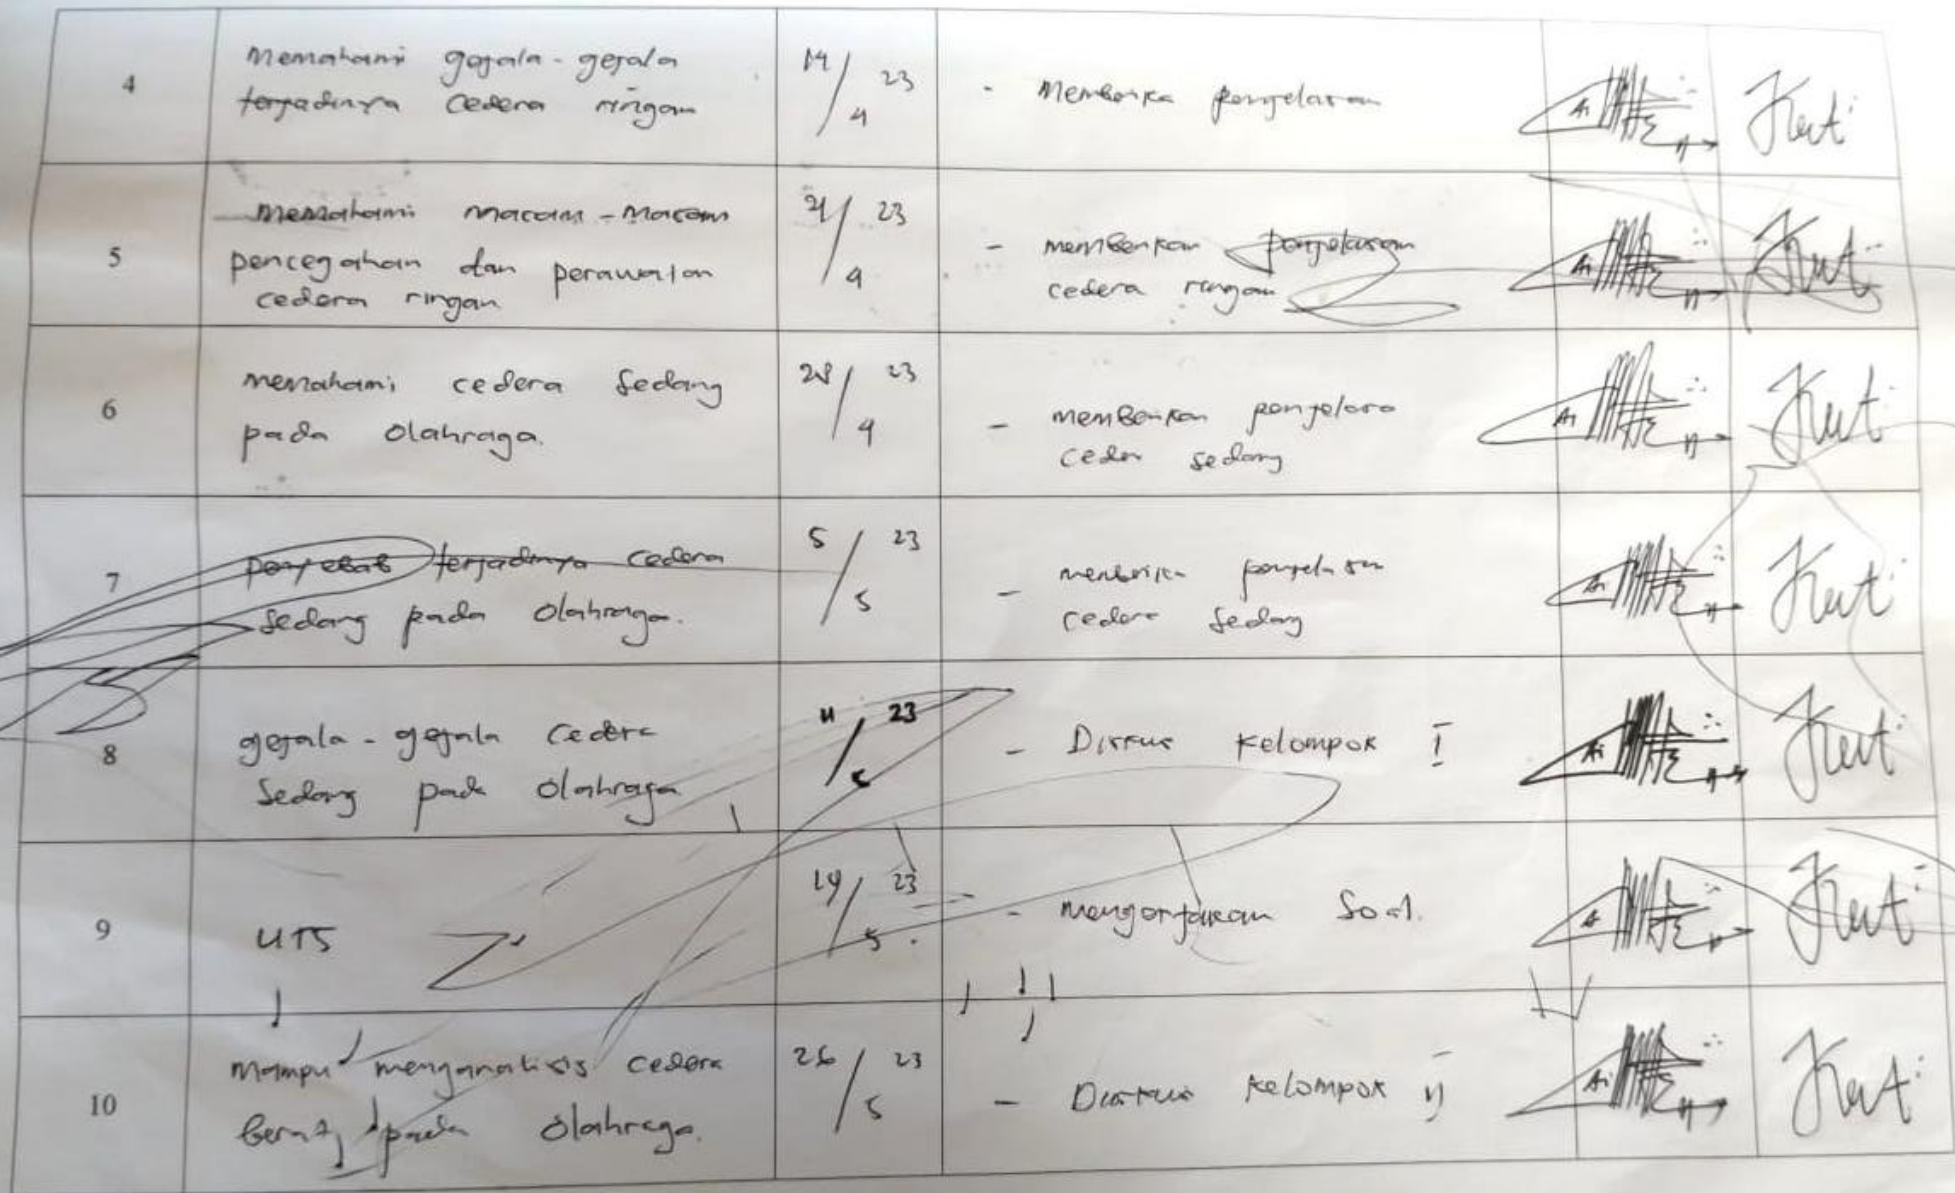 4
Memahami gejala-gejala
terjadinya cedera ringan
14/4 23
- Memberika penjelasan
5
Memahami macam-macam
pencegahan dan perawatan
cedera ringan
21/4 23
- memberikan penjelasan
cedera ringan
6
memahami cedera sedang
pada olahraga.
28/4 23
- memberikan penjelasa
ceder sedang
7
penyebab terjadinya cedera
sedang pada olahraga.
5/5 23
- memberika penjelasan
cedera sedang
8
gejala-gejala cedera
sedang pada olahraga
11/5 23
- Diskusi kelompok I
9
UTS
19/5 23
- mengerjakan soal.
10
Mampu menganalisis cedera
berat pada olahraga.
26/5 23
- Diskusi kelompok II